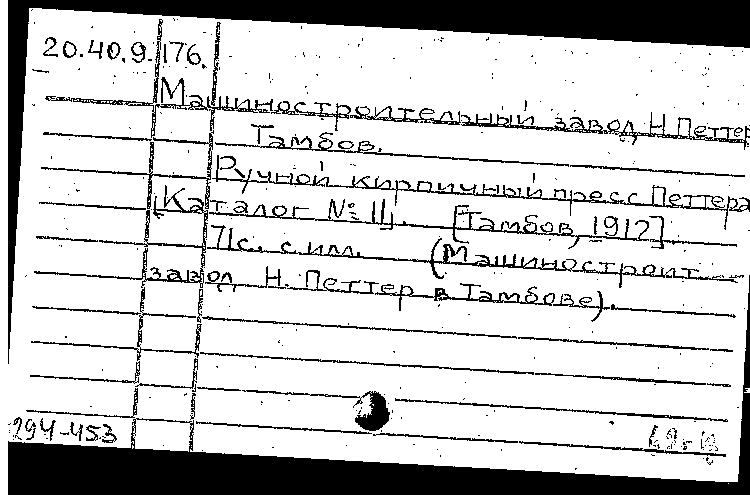 20.40.9.176.
Машиностроительный завод Н. Петтер
Тамбов.
Ручной кирпичный пресс Петтера
[Каталог № 11]. [Тамбов, 1912].
71с. с илл. (Машиностроит.
завод Н. Петтер в Тамбове).
294-453